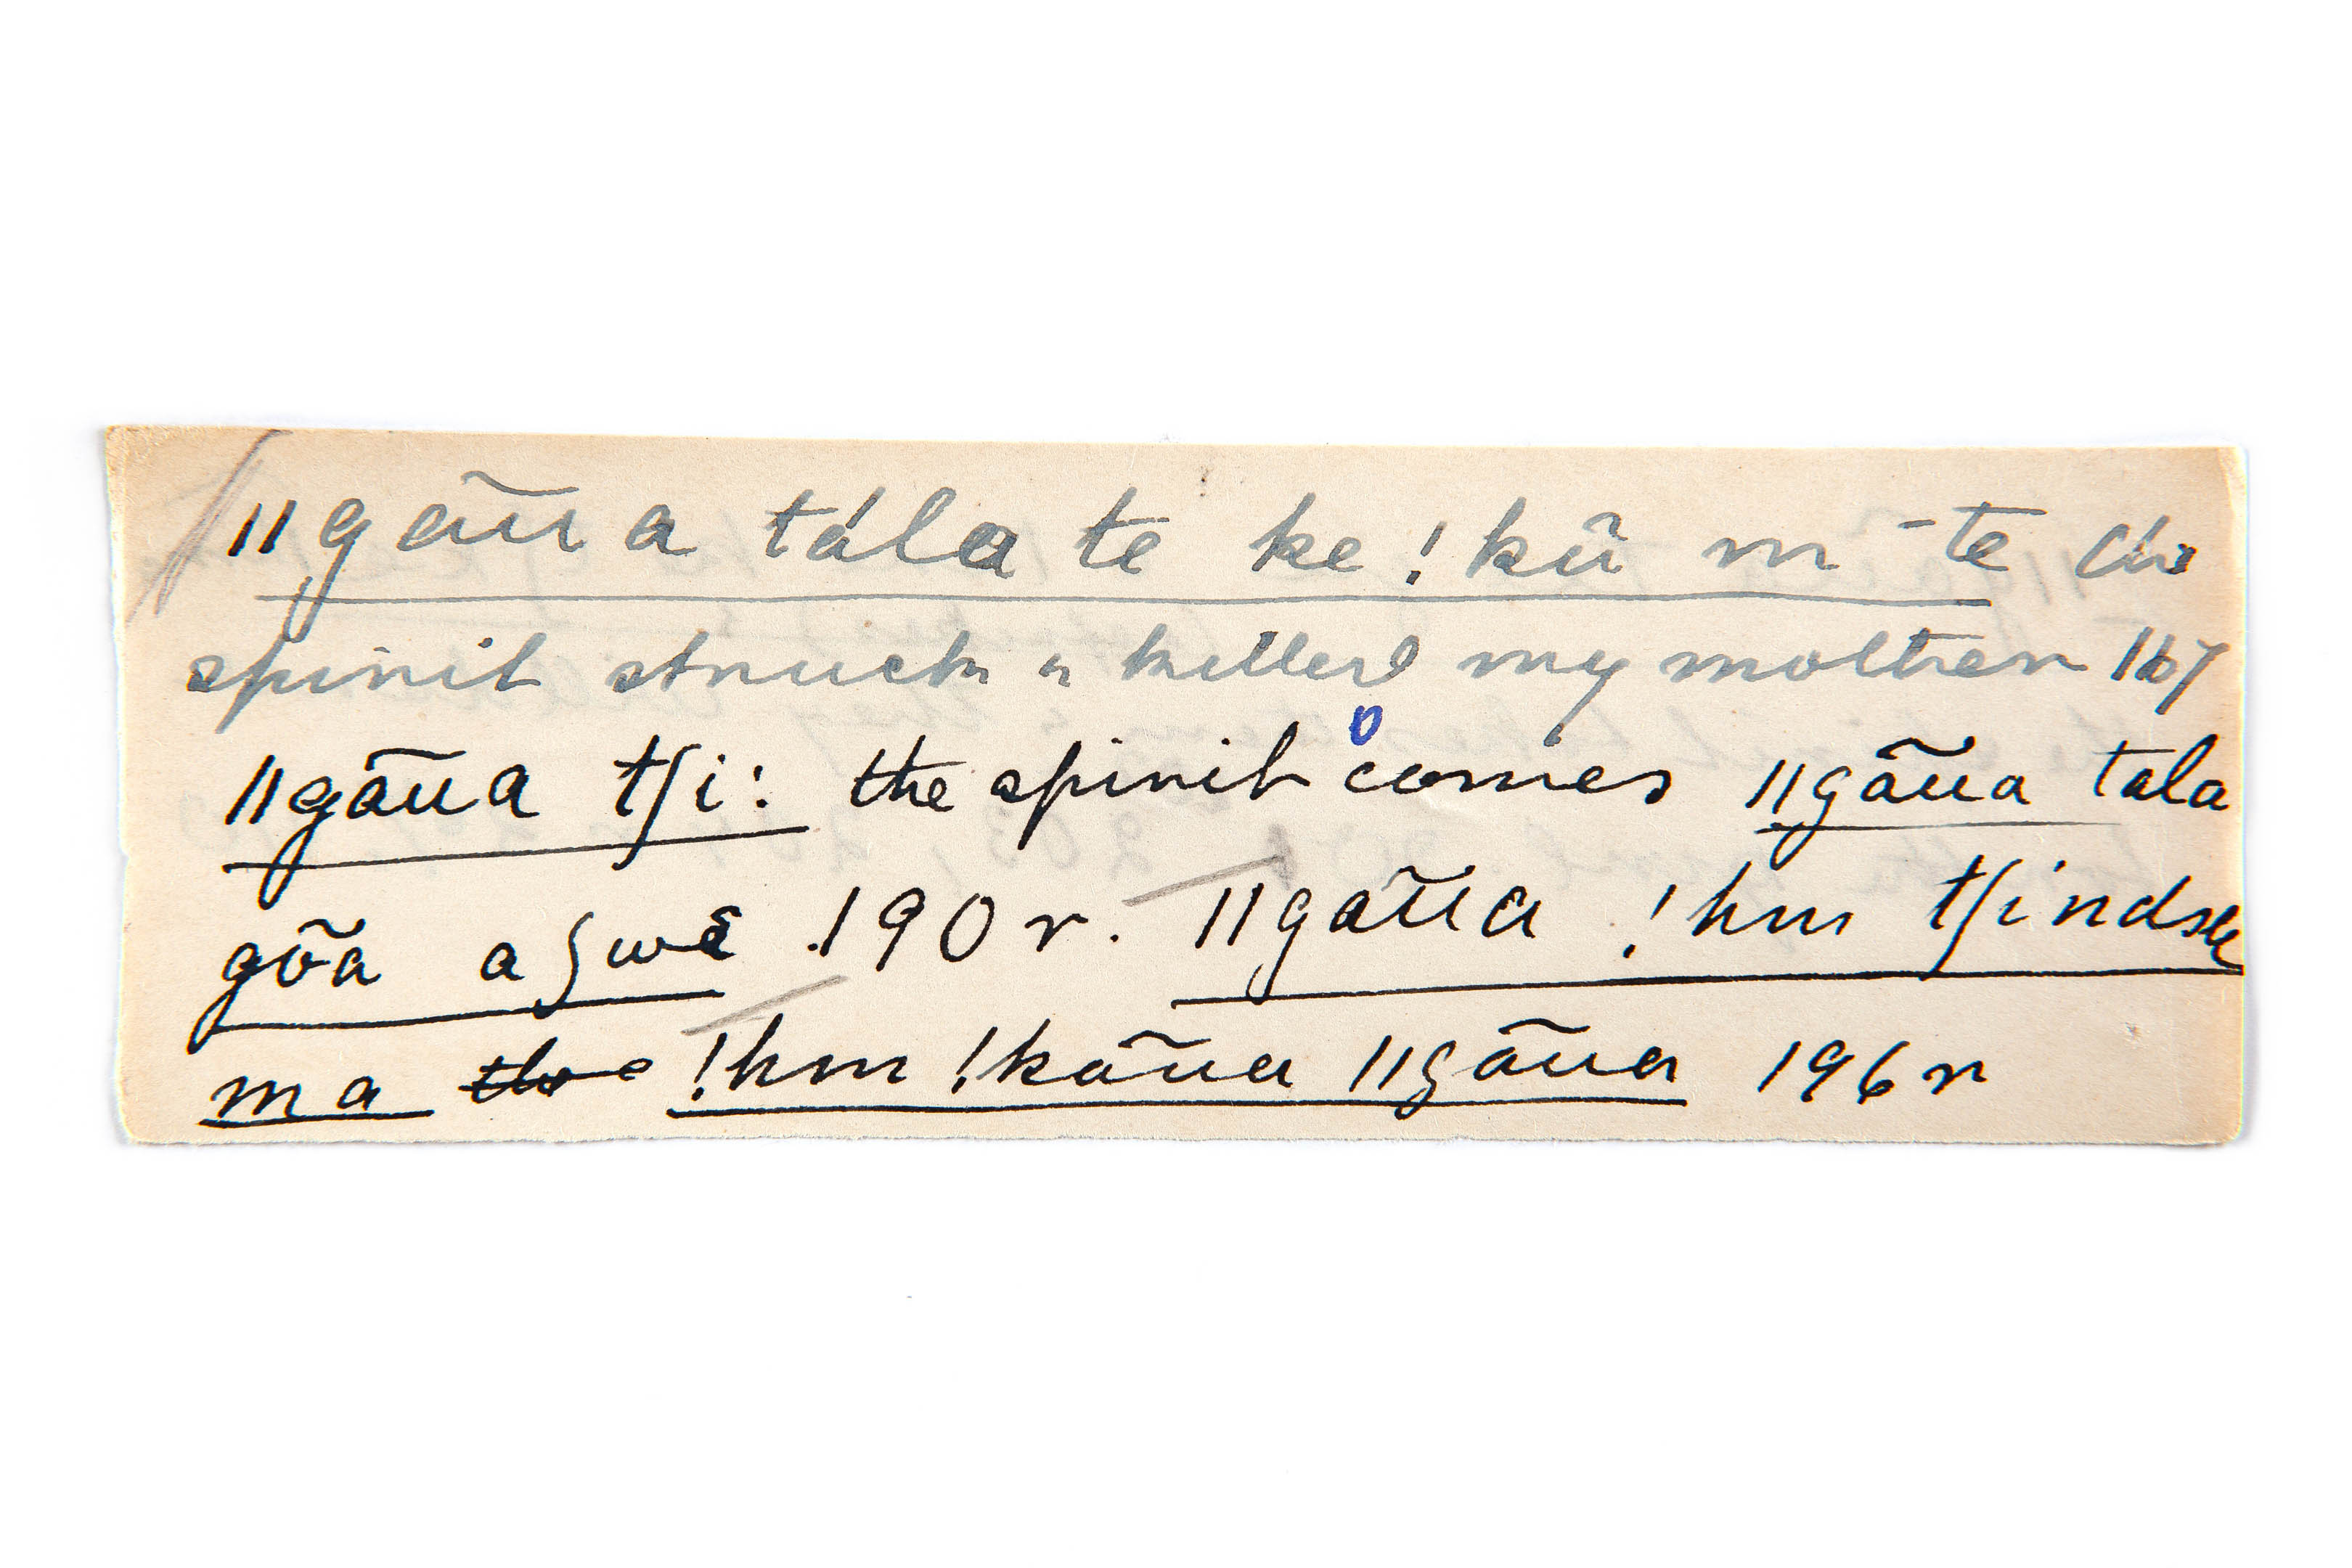 ǁgãũa tála te ke !kũ m̄ te the
spirit struck & killed my mother 167
ǁgãũa tʃi: the spirit comes ǁgãũa tala
gõa aʃwe 190 r. ǁgãũa !hm tʃindse
ma !hm !kãũa ǁgãũa 196 r